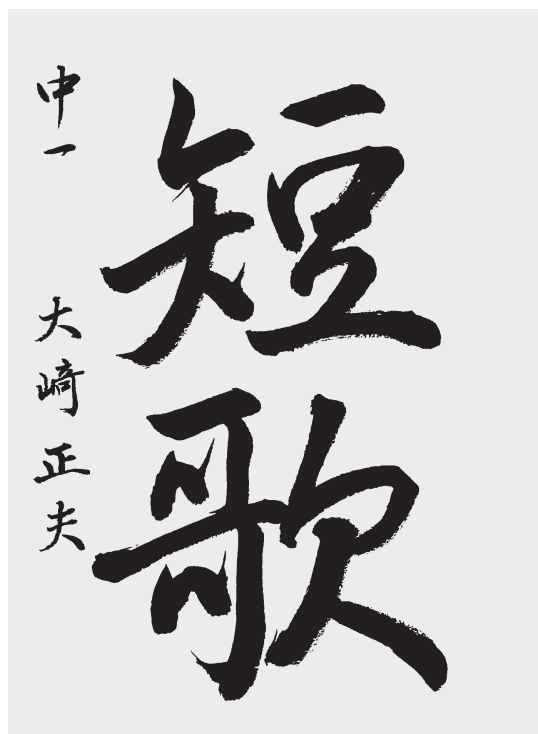 短歌
中一 大﨑正夫